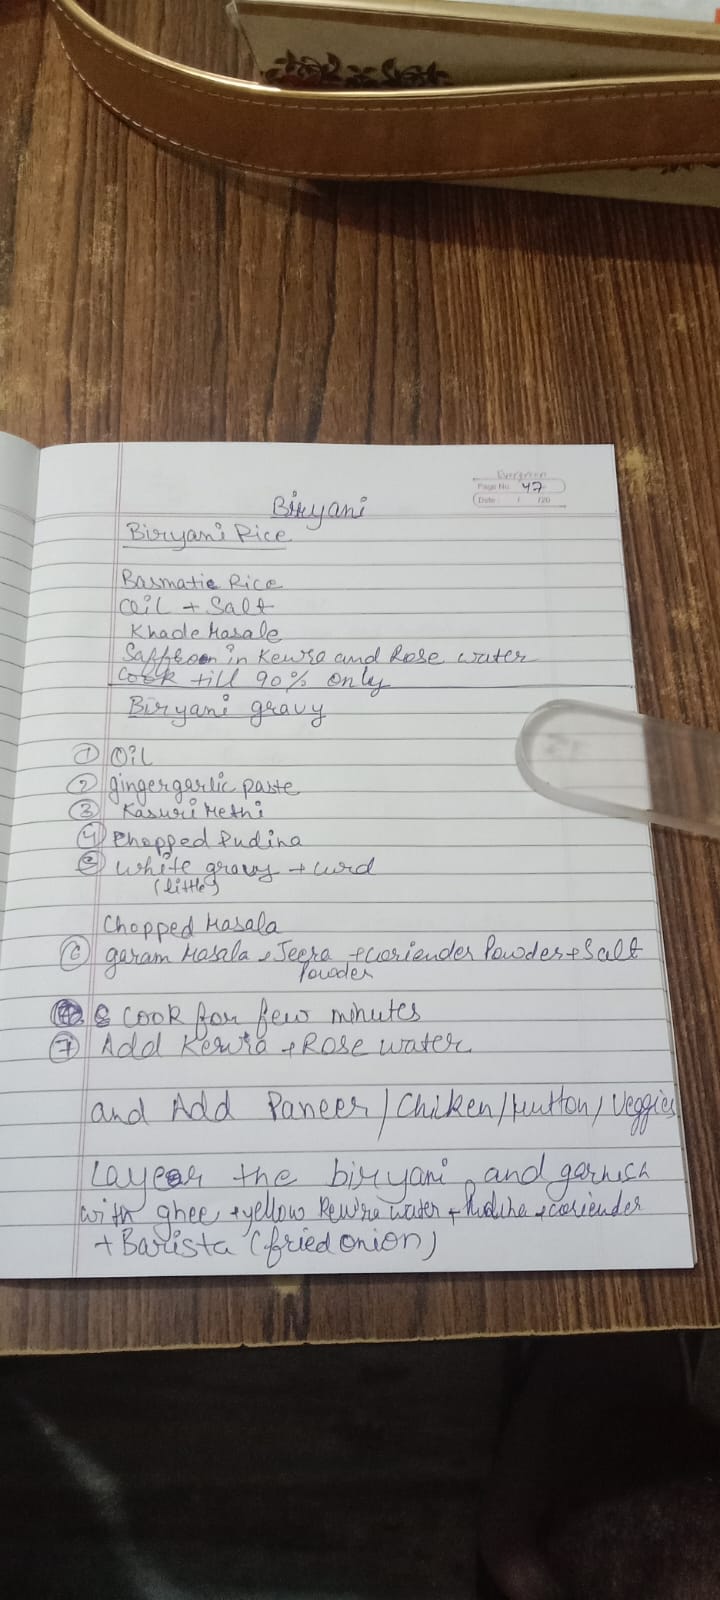 Evergreen
Page No. 47
Date: / /20
Biryani
Biryani Rice
Basmatic Rice
Oil + Salt
Khade Masale
Saffron in Kewra and Rose water
Cook till 90% only
Biryani gravy
① Oil
② gingergarlic paste
③ Kasuri Methi
④ Chopped Pudina
⑤ white gravy + curd
(little)
Chopped Masala
⑥ garam Masala + Jeera + coriender Powder + Salt
Powder
& cook for few minutes
⑦ Add Kewra + Rose water
and Add Paneer / Chiken / Mutton / Veggies
Layer the biryani and garnish
with ghee + yellow Kewra water + Pudina + coriender
+ Barista (fried onion)